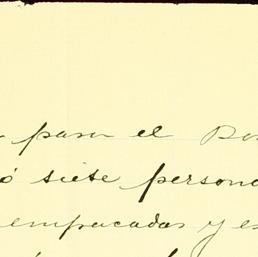 para el
siete persona
empacadas y es